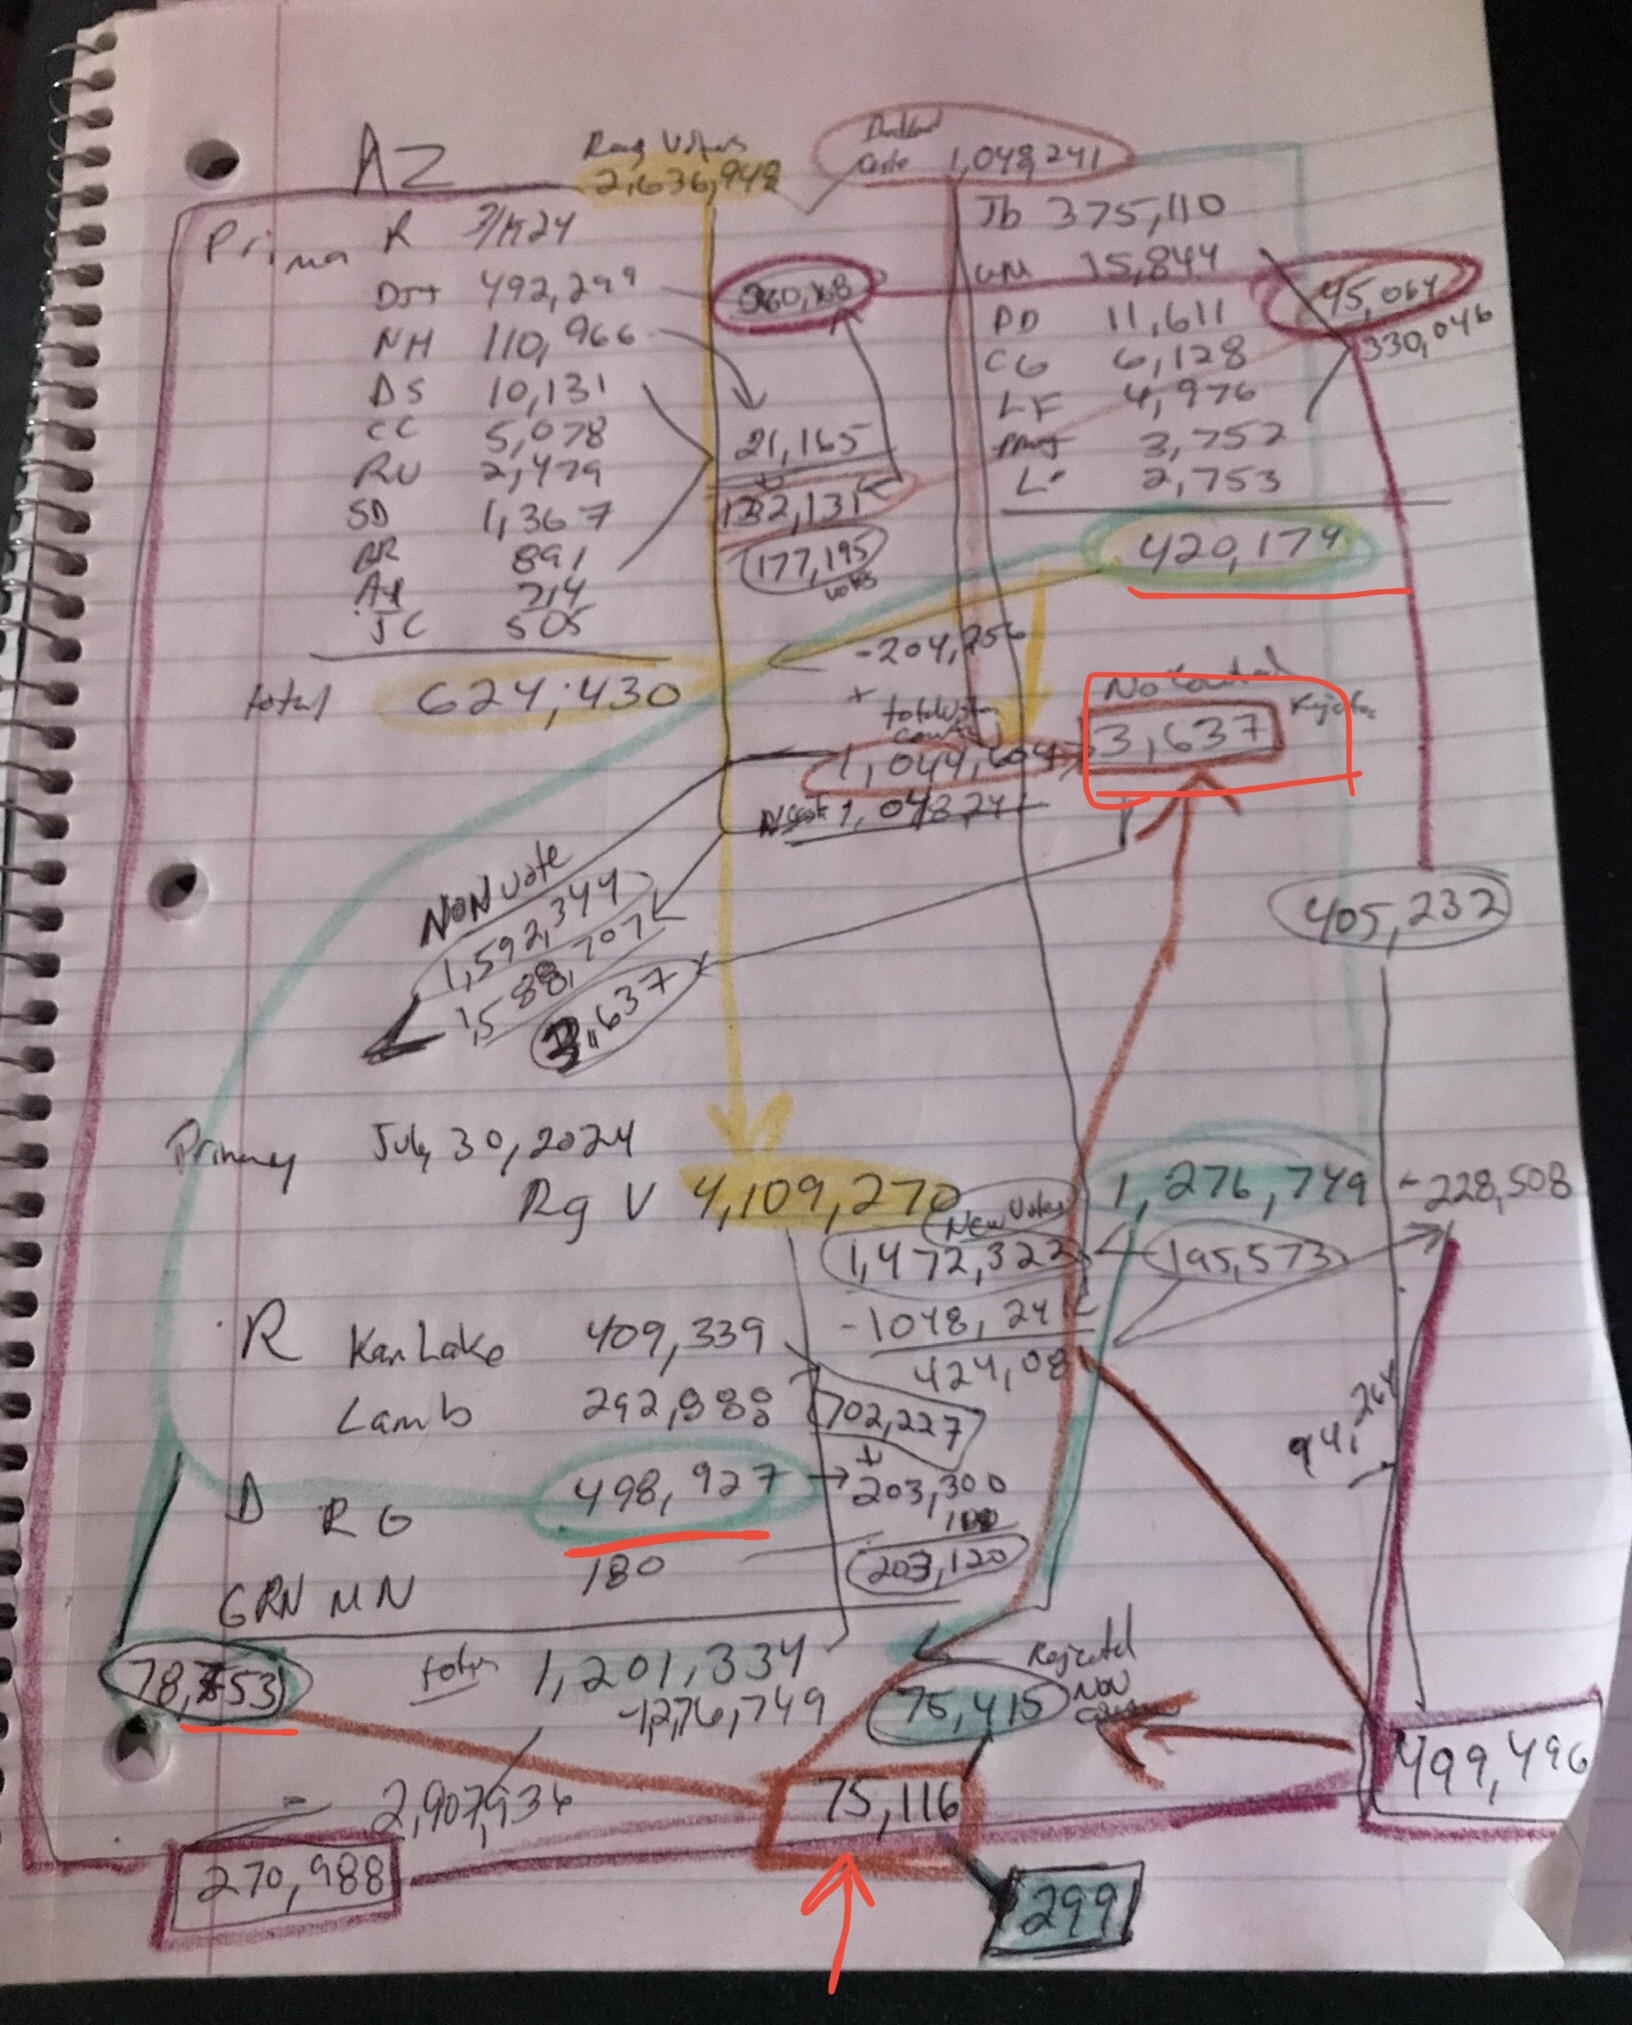 AZ
Reg Voters
2,636,948
1,048,241
Prima R
Jb 375,110
15,844
492,299
45,064
PD 11,611
330,046
NH 110,966
CG 6,128
DS 10,131
LF 4,976
CC 5,078
21,165
3,752
2,479
L 2,753
SD 1,367
132,131
891
177,195
votes
420,179
JC 505
total 624,430
No
3,637
1,044,604
Non vote
1,592,344
1,588,707
3,637
405,232
Primary July 30, 2024
Rg V 4,109,270
1,276,749
-228,508
New Votes
1,472,322
195,573
-1048,241
424,08
R Kari Lake 409,339
Lamb 292,888
702,227
94,264
D RG 498,927
203,300
180
203,120
GRN MN 180
78,753
1,201,334
Rejected
Non
-1,276,749
75,415
499,496
2,907,936
75,116
270,988
299